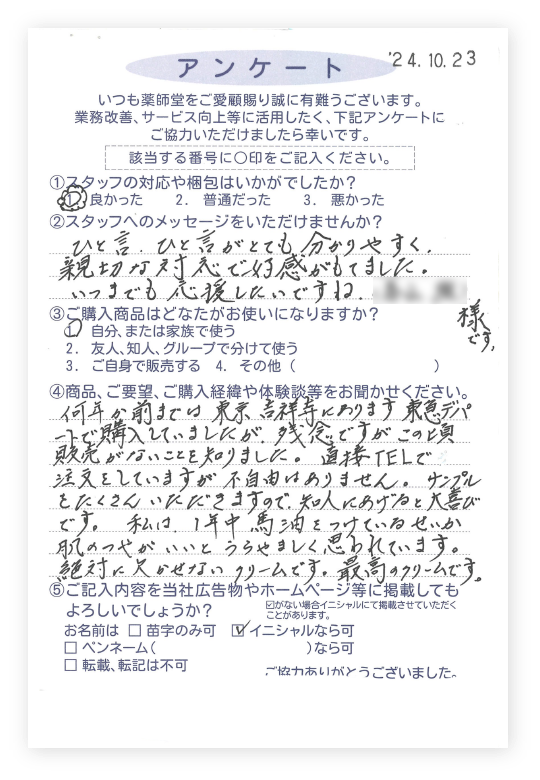 '24.10.23
アンケート
いつも薬師堂をご愛顧賜り誠に有難うございます。
業務改善、サービス向上等に活用したく、下記アンケートに
ご協力いただけましたら幸いです。
該当する番号に〇印をご記入ください。
①スタッフの対応や梱包はいかがでしたか?
1. 良かった 2. 普通だった 3. 悪かった
②スタッフへのメッセージをいただけませんか?
ひと言、ひと言がとても分かりやすく、
親切な対応で好感がもてました。
いつまでも応援したいですね、
様
です。
③ご購入商品はどなたがお使いになりますか?
1. 自分、または家族で使う
2. 友人、知人、グループで分けて使う
3. ご自身で販売する 4. その他( )
④商品、ご要望、ご購入経緯や体験談等をお聞かせください。
何年か前までは東京吉祥寺にあります東急デパ
ートで購入していましたが、残念ですがこの頃
販売がないことを知りました。直接TELで
注文をしていますが不自由はありません。サンプル
をたくさんいただきますので、知人にあげると大喜び
です。私は、1年中馬油をつけているせいか
肌のつやがいいとうらやましく思われています。
絶対に欠かせないクリームです。最高のクリームです。
⑤ご記入内容を当社広告物やホームページ等に掲載しても
よろしいでしょうか? ☑がない場合イニシャルにて掲載させていただく
ことがあります。
お名前は □ 苗字のみ可 ☑ イニシャルなら可
□ ペンネーム( )なら可
□ 転載、転記は不可
ご協力ありがとうございました。